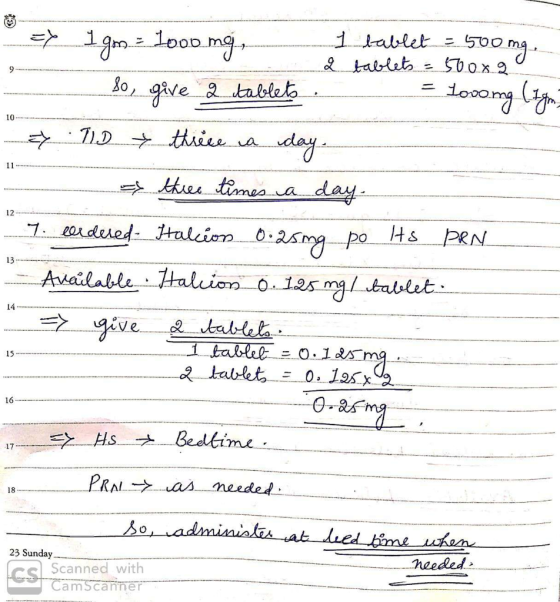 ⇒ 1 gm = 1000 mg, 1 tablet = 500 mg.
2 tablets = 500 x 2
9
So, give 2 tablets. = 1000mg (1gm)
10
⇒ TID → thrice a day.
11
⇒ three times a day.
12
7. ordered - Halcion 0.25mg po HS PRN
13
Available. Halcion 0.125 mg/ tablet.
14
⇒ give 2 tablets.
15
1 tablet = 0.125mg.
2 tablets = 0.125 x 2
16
0.25 mg.
17
⇒ HS → Bedtime.
18
PRN → as needed.
So, administer at bed time when
23 Sunday
needed.
CS Scanned with
CamScanner